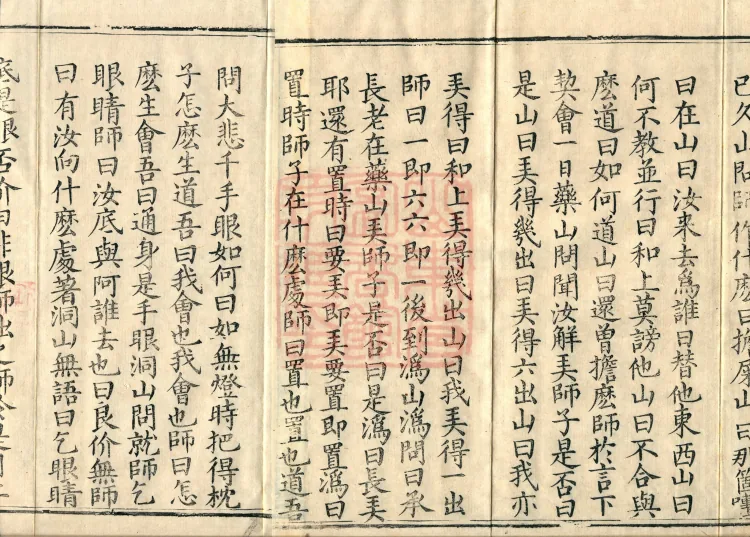 已久山問師作什麼曰擔屎山曰那箇𡁠
曰在山曰汝來去為誰曰替他東西山曰
何不教並行曰和上莫謗他山曰不合與
麼道曰如何道山曰還曾擔麼師於言下
契會一日藥山問聞汝解弄師子是否曰
是山曰弄得幾出曰弄得六出山曰我亦
弄得曰和上弄得幾出山曰我弄得一出
師曰一即六六即一後到溈山溈問曰承
長老在藥山弄師子是否曰是溈曰長弄
耶還有置時曰要弄即弄要置即置溈曰
置時師子在什麼處師曰置也置也道吾
問大悲千手眼如何曰如無燈時把得枕
子怎麼生道吾曰我會也我會也師曰怎
麼生會吾曰通身是手眼洞山問就師乞
眼睛師曰汝底與阿誰去也曰良价無師
曰有汝向什麼處著洞山無語曰乞眼睛
底是眼否价曰非眼師咄之師